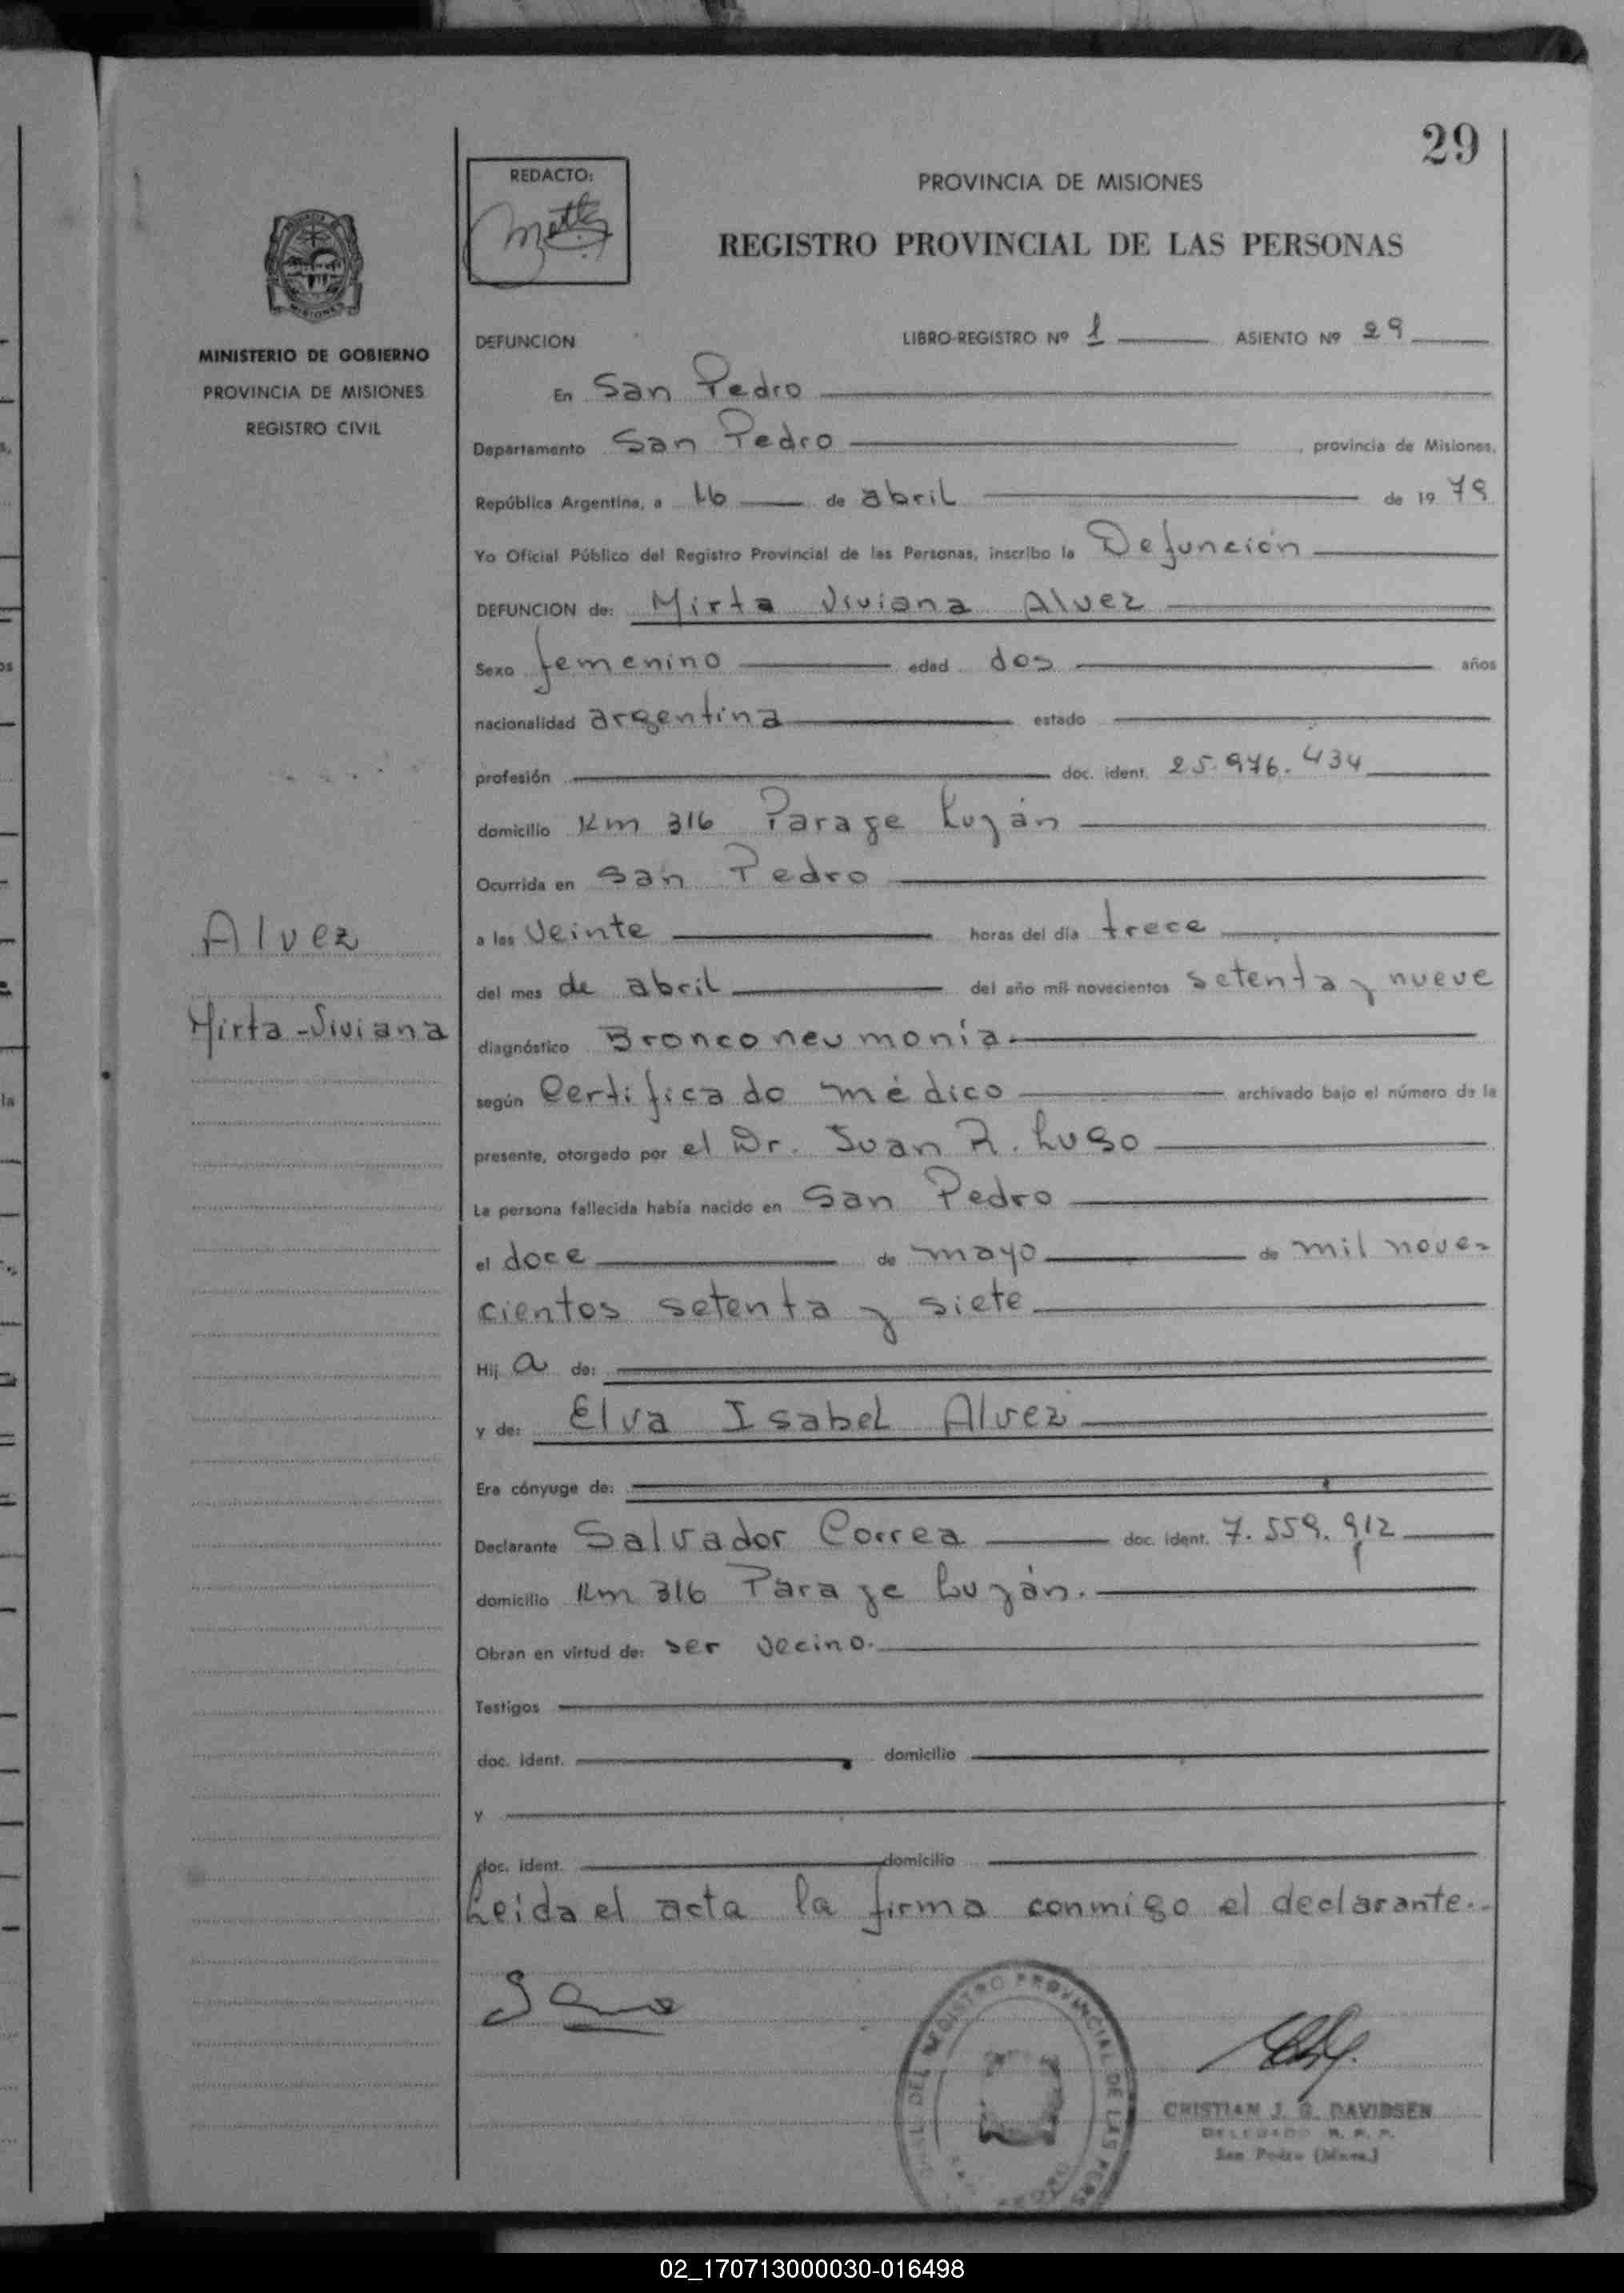 29
REDACTO:
PROVINCIA DE MISIONES
REGISTRO PROVINCIAL DE LAS PERSONAS
MINISTERIO DE GOBIERNO
PROVINCIA DE MISIONES
REGISTRO CIVIL
DEFUNCION LIBRO-REGISTRO Nº 1 ASIENTO Nº 29
En San Pedro
Departamento San Pedro , provincia de Misiones,
República Argentina, a 16 de abril de 1979
Yo Oficial Público del Registro Provincial de las Personas, inscribo la Defunción
DEFUNCION de: Mirta Viviana Alvez
Sexo femenino edad dos años
nacionalidad argentina estado
profesión doc. ident. 25.976.434
domicilio Km 316 Parage Luján
Ocurrida en San Pedro
a las Veinte horas del día trece
del mes de abril del año mil novecientos setenta y nueve
diagnóstico Bronconeumonía.
según Certificado médico archivado bajo el número de la
presente, otorgado por el Dr. Juan R. Lugo
La persona fallecida había nacido en San Pedro
el doce de mayo de mil nove-
cientos setenta y siete
Hija de:
y de: Elva Isabel Alvez
Era cónyuge de:
Declarante Salvador Correa doc. ident. 7.559.912
domicilio Km 316 Paraje Luján.
Obran en virtud de: ser vecino.
Testigos
doc. ident. domicilio
y
doc. ident. domicilio
Leida el acta la firma conmigo el declarante.-
Alvez
Mirta-Viviana
DEL REGISTRO PROVINCIAL DE LAS PERS
CRISTIAN J. G. DAVIDSEN
DELEGADO R. P. P.
San Pedro (Mnes.)
02_170713000030-016498